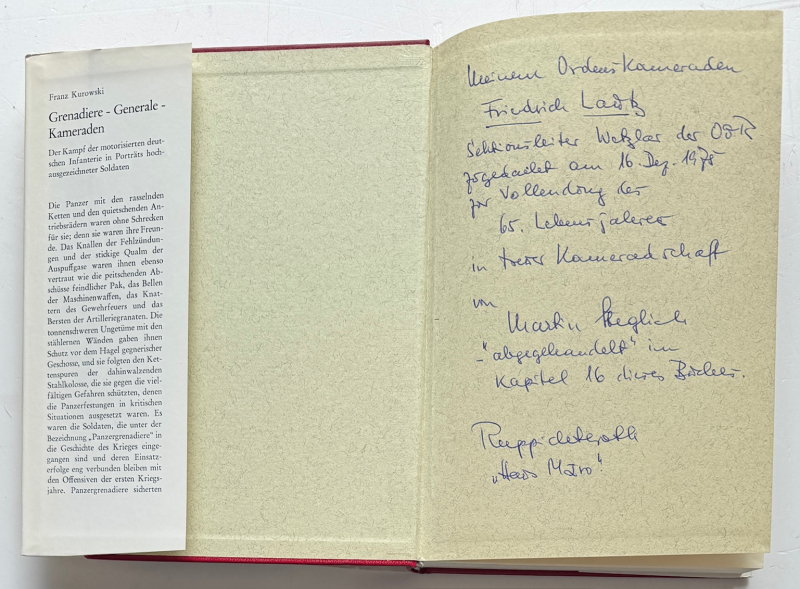 Franz Kurowski
Grenadiere – Generale –
Kameraden
Der Kampf der motorisierten deut-
schen Infanterie in Porträts hoch-
ausgezeichneter Soldaten
Die Panzer mit den rasselnden
Ketten und den quietschenden An-
triebsrädern waren ohne Schrecken
für sie; denn sie waren ihre Freun-
de. Das Knallen der Fehlzündun-
gen und der stickige Qualm der
Auspuffgase waren ihnen ebenso
vertraut wie die peitschenden Ab-
schüsse feindlicher Pak, das Bellen
der Maschinenwaffen, das Knat-
tern des Gewehrfeuers und das
Bersten der Artilleriegranaten. Die
tonnenschweren Ungetüme mit den
stählernen Wänden gaben ihnen
Schutz vor dem Hagel gegnerischer
Geschosse, und sie folgten den Ket-
tenspuren der dahinwalzenden
Stahlkolosse, die sie gegen die viel-
fältigen Gefahren schützten, denen
die Panzerfestungen in kritischen
Situationen ausgesetzt waren. Es
waren die Soldaten, die unter der
Bezeichnung „Panzergrenadiere" in
die Geschichte des Krieges einge-
gangen sind und deren Einsatz-
erfolge eng verbunden bleiben mit
den Offensiven der ersten Kriegs-
jahre. Panzergrenadiere sicherten
Meinem Ordenskameraden
Friedrich
Sektionsleiter Wetzlar der OdR
zugedacht am 16. Dez. 1975
zur Vollendung des
65. Lebensjahres
in treuer Kameradschaft
von
Martin Steglich
- „abgehandelt" im
Kapitel 16 dieses Buches.
Ruppichteroth
„Haus